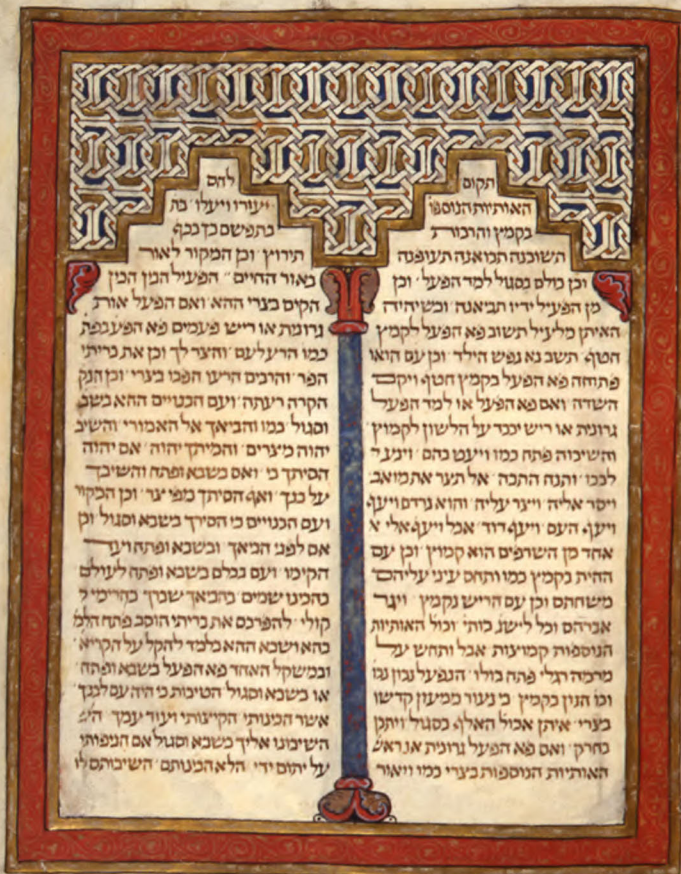 תקום
האותיות הנוספו
בקמץ והרבורת
תשוכנה תבואנה תעופנה
וכן כולם בסגול למד הפעל וכן
מן הפעיל ידיו תביאנה ובשיהיה
האיתן מלעיל תשוב פא הפעל לקמץ
חטף תשב נא נפש הילד וכן עם הואו
פתוחה פא הפעל בקמץ חטף ויקם
השדה ואם פא הפעל או למד הפעל
גרונית או ריש יכבד על הלשון לקמוץ
והשיבוה פתח כמו ויעט בהם וינע
לבבו ותנח התבה אל תצר את מואב
ויסר אליה ויצר עליה והוא נרדם ויעף
ויעף העם ויעף דוד אבל ויעף אלי א
אחד מן השרפים הוא קמוץ וכן עם
החית בקמץ כמו ותחס עיני עליהם
משחתם וכן עם הריש בקמץ ויגר
אברהם וכל לישנ כותי וכול האותיות
הנוספות קמוצות אבל ותחש על
מרמה רגלי פתח כולו הנפעל נכון נמו
וכו הנון בקמץ כי נעור ממעון קדשו
בצרי איתן אכול האלף בסגול ויתכן
בחרק ואם פא הפעל גרונית או ראש
האותיות הנוספות בצרי כמו ויאור
להם
יעורו ויעלו בת
בתפשם בך בכף
תירוץ וכן המקור לאור
באור החיים הפעיל הבן הכין
הקים בצרי ההא ואם הפעל אות
גרונית או ריש פעמים פא הפע בפת
כמו הרע לעם והצר לך וכן את בריתי
הפר והרבים הרעו הפכו בצרי וכן הנק
הקרה רעתה ועם הכנויים ההא בשב
וסגול כמו והביאך אל האמורי והשיב
יהוה מצרים והמיתך יהוה אם יהוה
הסיתך בי ואם בשבא ופתח והשיבך
על כנך ואף הסיתך מפי צר וכן המקור
ועם הכנויים כי הסירך בשבא וסגול וכן
אם לפני הביאך ובשבא ופתח ויעד
הקימו ועם כולם בשבא ופתח לעולם
בהכינו שמים בהביאך שברך בהרימי ל
קולי להפרכם את בריתי הוסב פתח הלמ
בהא ושבא ההא בלמד להקל על הקריא
ובמשקל האחד פא הפעל בשבא ופתח
או בשבא וסגול הטיבות כי היה עם לבבך
אשר הכינותי הקיצותי ויעוד עמך הש
השיבונו אליך בשבא וסגול אם הניפותי
על יתום ידי הלא הכינותם השיבותם לו